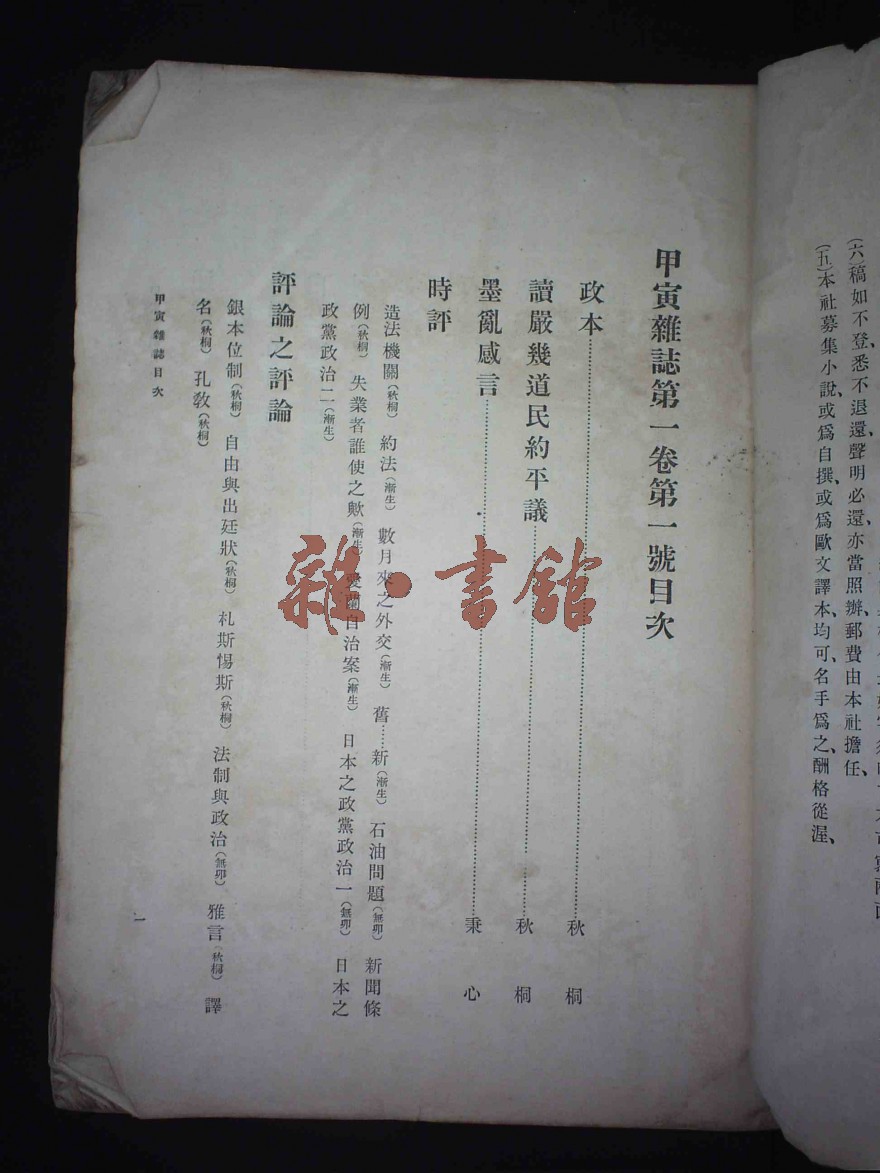 (五)本社募集小說、或爲自撰、或爲歐文譯本、均可、名手爲之、酬格從渥、
(六)稿如不登、悉不退還、聲明必還、亦當照辦、郵費由本社擔任、
甲寅雜誌第一卷第一號目次
政本……秋桐
讀嚴幾道民約平議……秋桐
墨亂感言……秉心
時評
造法機關(秋桐) 約法(漸生) 數月來之外交(漸生) 舊……新(漸生) 石油問題(無卯) 新聞條
例(秋桐) 失業者誰使之歟(漸生) 愛蘭自治案(漸生) 日本之政黨政治一(無卯) 日本之
政黨政治二(漸生)
評論之評論
銀本位制(秋桐) 自由與出廷狀(秋桐) 札斯惕斯(秋桐) 法制與政治(無卯) 雅言(秋桐) 譯
名(秋桐) 孔敎(秋桐)
甲寅雜誌目次
一
雜·書館